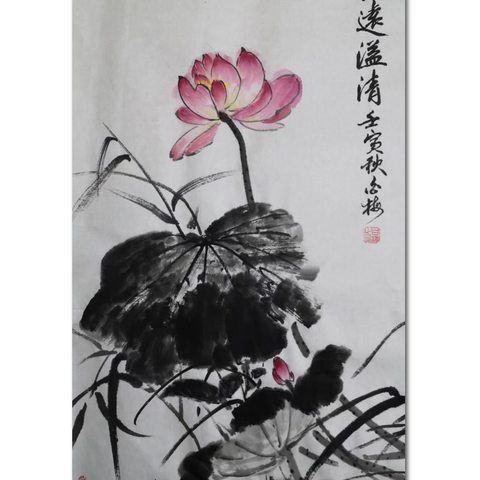 遠溢清 壬寅秋白梅